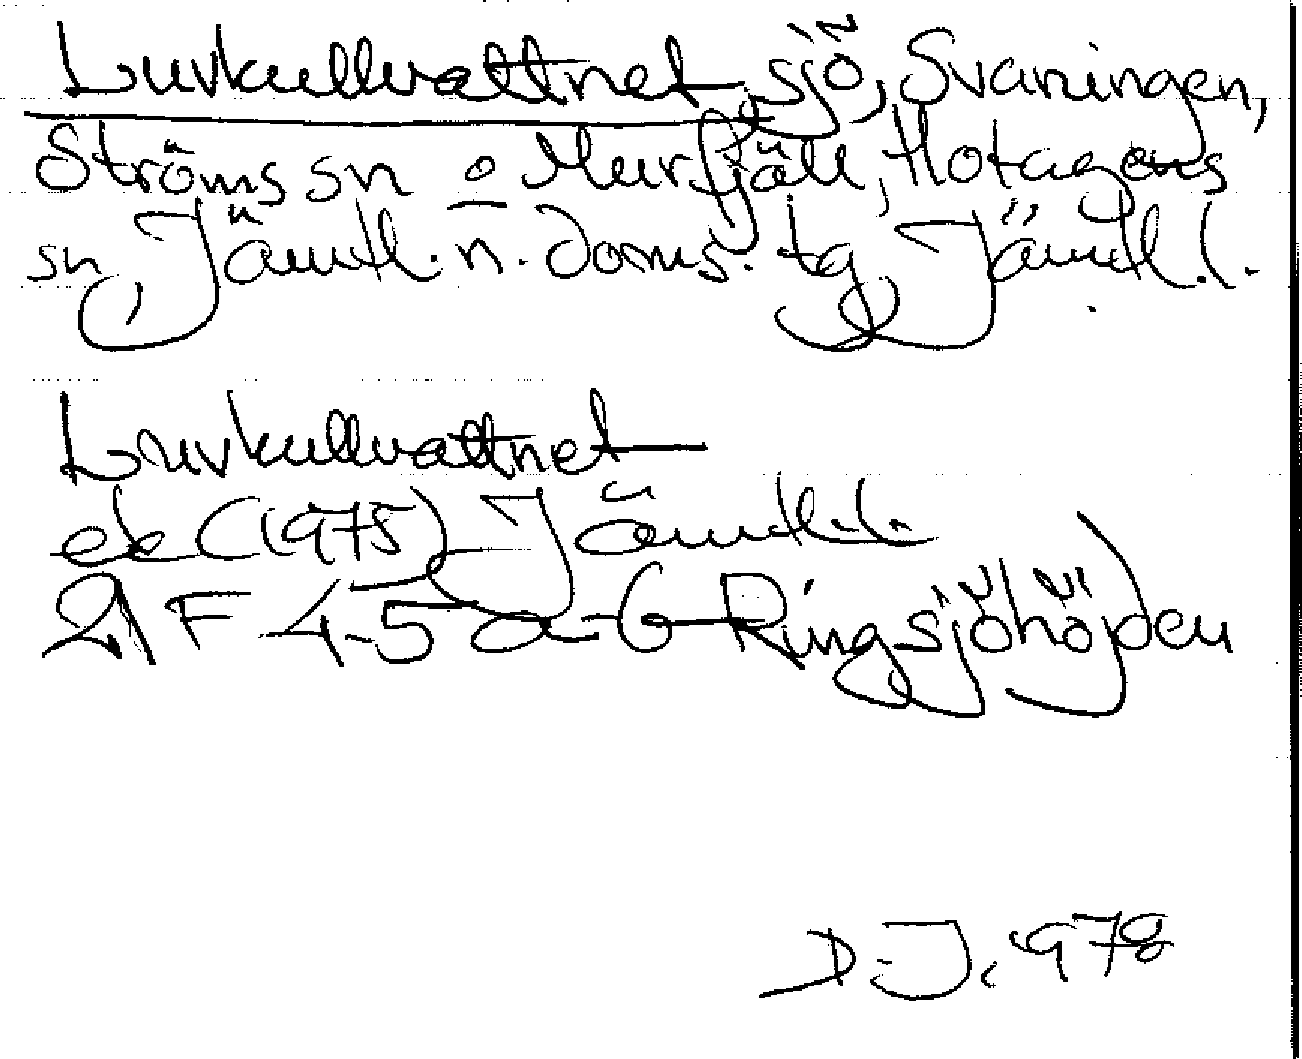 Luvkullvattnet, sjö, Svaningen,
Ströms sn o Murfjäll, Hotagens
sn, Jämtl. n. doms. tg, Jämtl. l.
Luvkullvattnet
ek (1975) Jämtl. l.
21 F 4-5 a-b Ringsjöhöjden
D. J. 1978